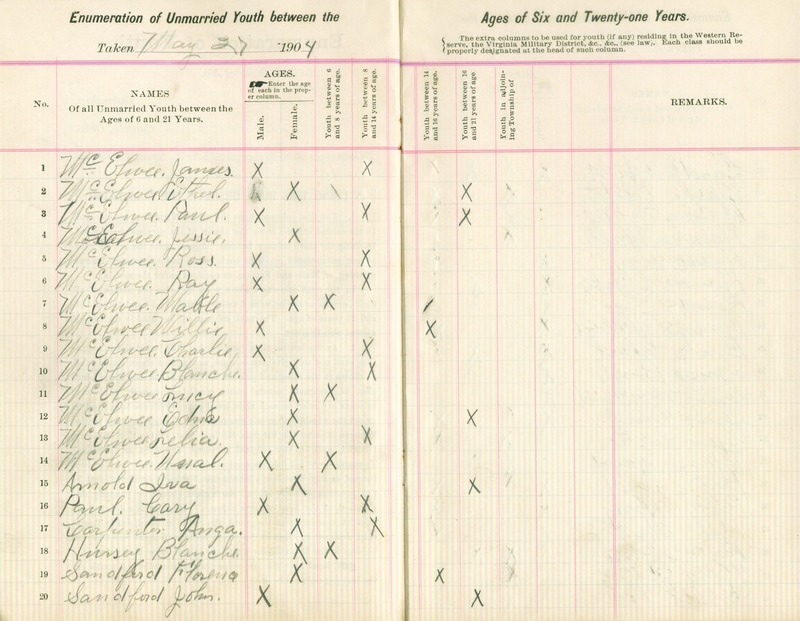 Enumeration of Unmarried Youth between the Ages of Six and Twenty-one Years.
Taken May 27 1904
The extra columns to be used for youth (if any) residing in the Western Re-
serve, the Virginia Military District, &c., &c., (see law). Each class should be
properly designated at the head of such column.
No.
NAMES
Of all Unmarried Youth between the
Ages of 6 and 21 Years.
AGES.
Enter the age
of each in the prop-
er column.
Male.
Female.
Youth between 6
and 8 years of age.
Youth between 8
and 14 years of age.
Youth between 14
and 16 years of age.
Youth between 16
and 21 years of age
Youth in adjoin-
ing Township of
REMARKS.
1 McElwee. James. X X
2 McElwee. Ethel. X X
3 McElwee. Paul. X X X
4 McElwee. Jessie. X
5 McElwee. Ross. X X
6 McElwee. Ray X X
7 McElwee. Mable X X
8 McElwee Willie X X
9 McElwee. Charlie X X
10 McElwee. Blanche. X X
11 McElwee Lucy X X
12 McElwee Edna X X
13 McElwee Lelia. X X
14 McElwee. X X
15 Arnold Iva X X
16 Paul. Cary X X
17 Carpenter X X
18 Hursey Blanche. X X
19 Sandford Florence X X
20 Sandford John. X X